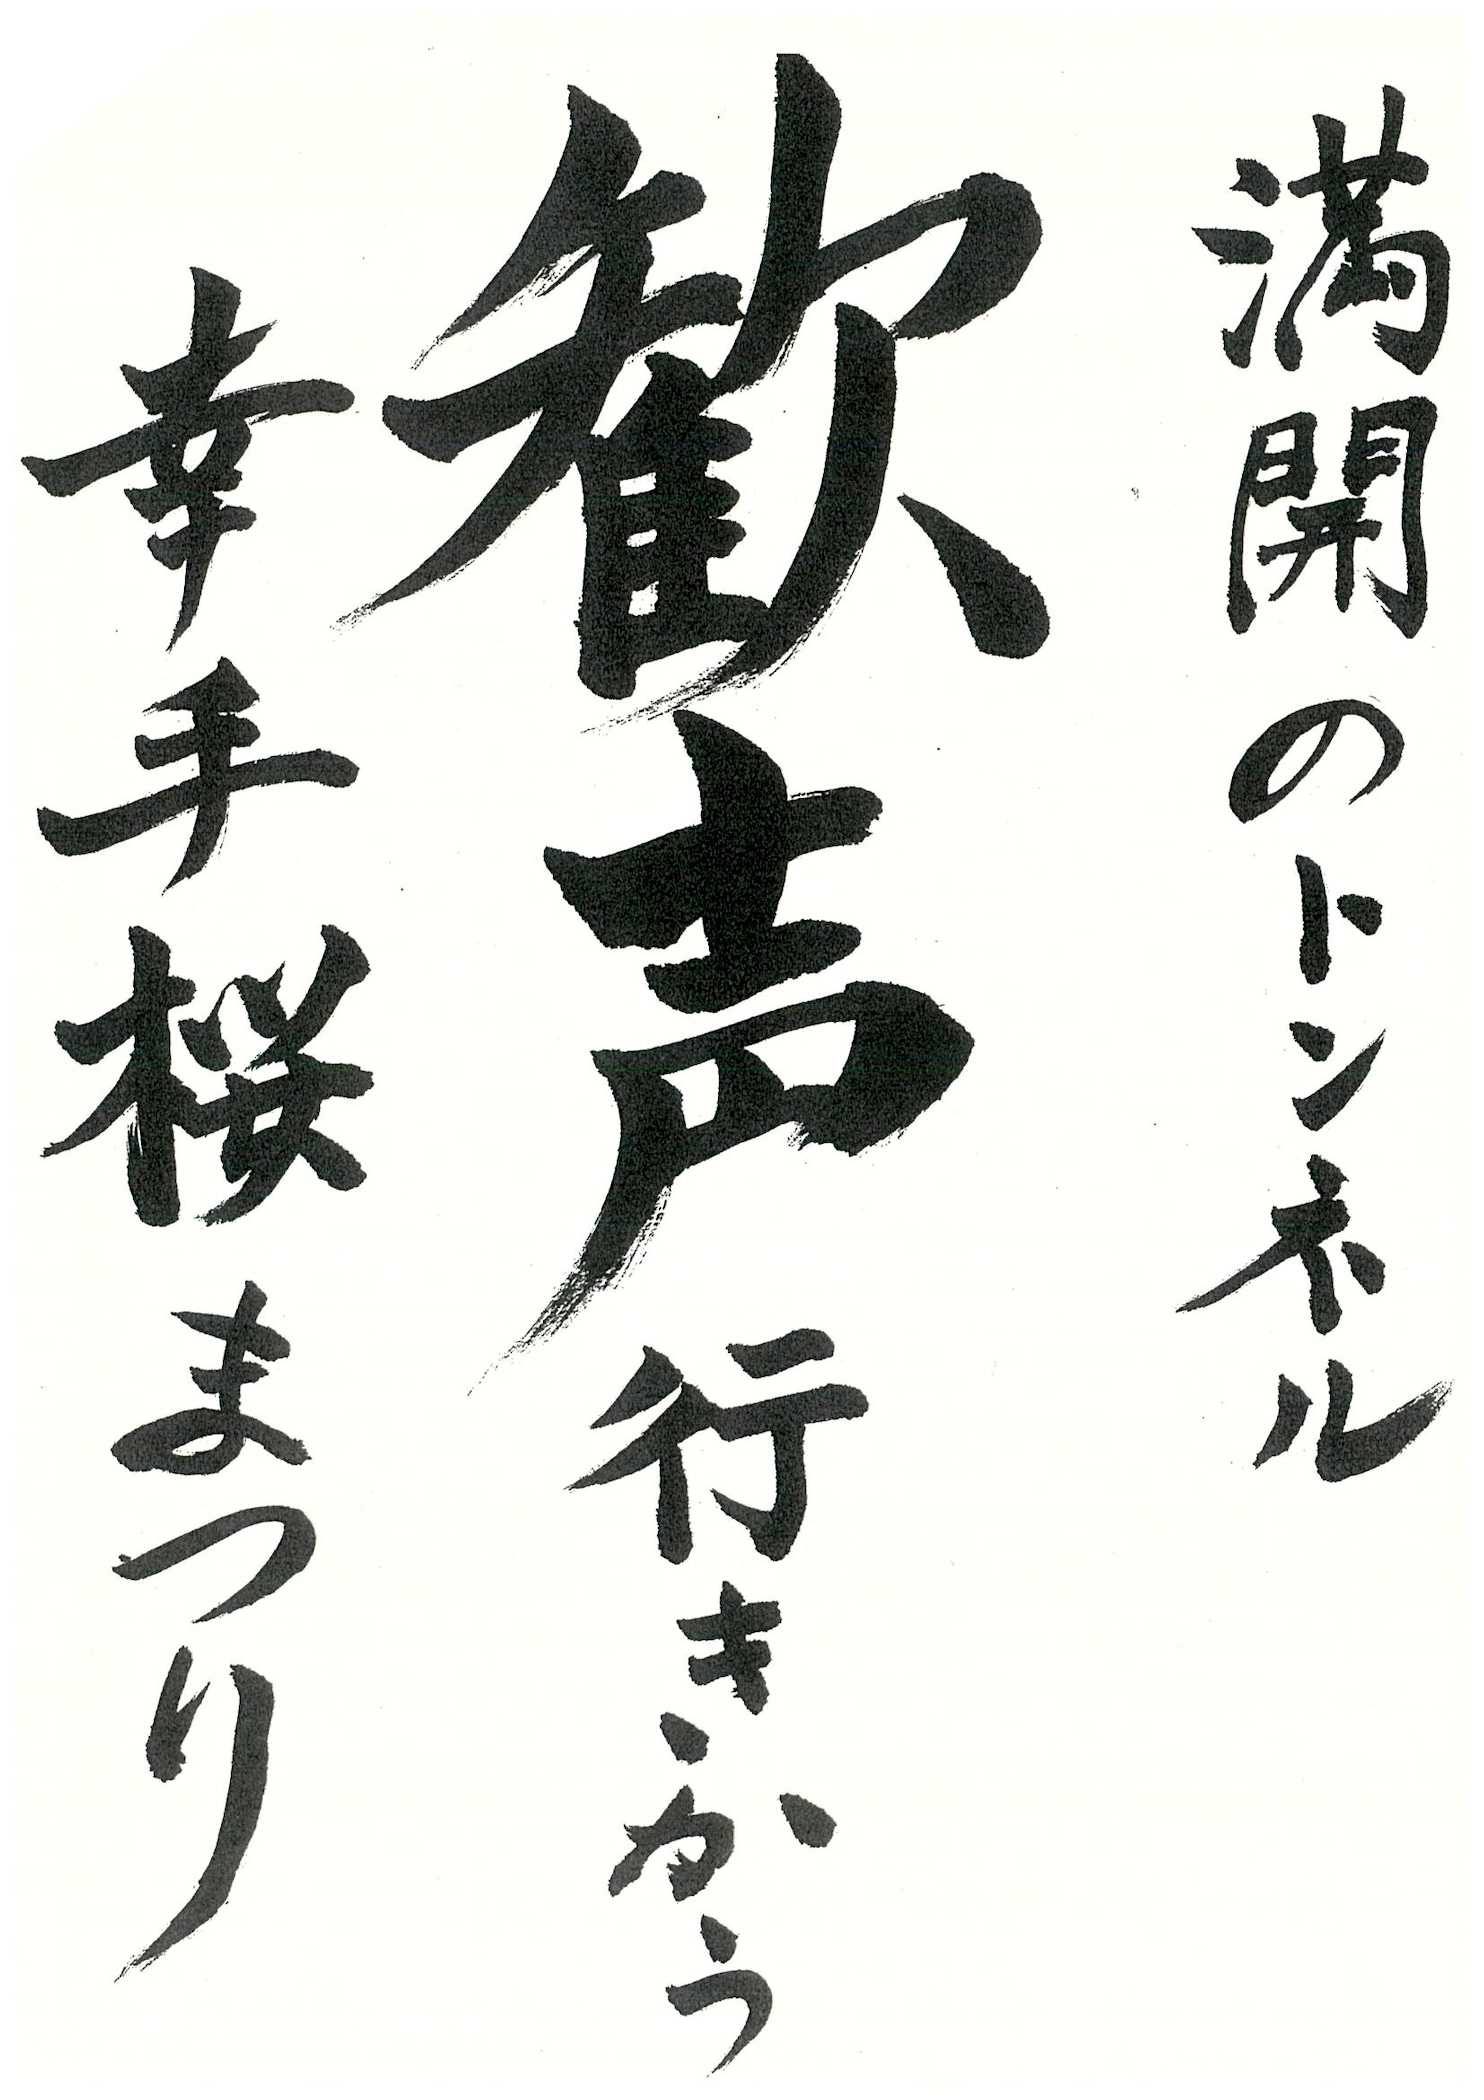 満開のトンネル
歓声行きかう
幸手桜まつり